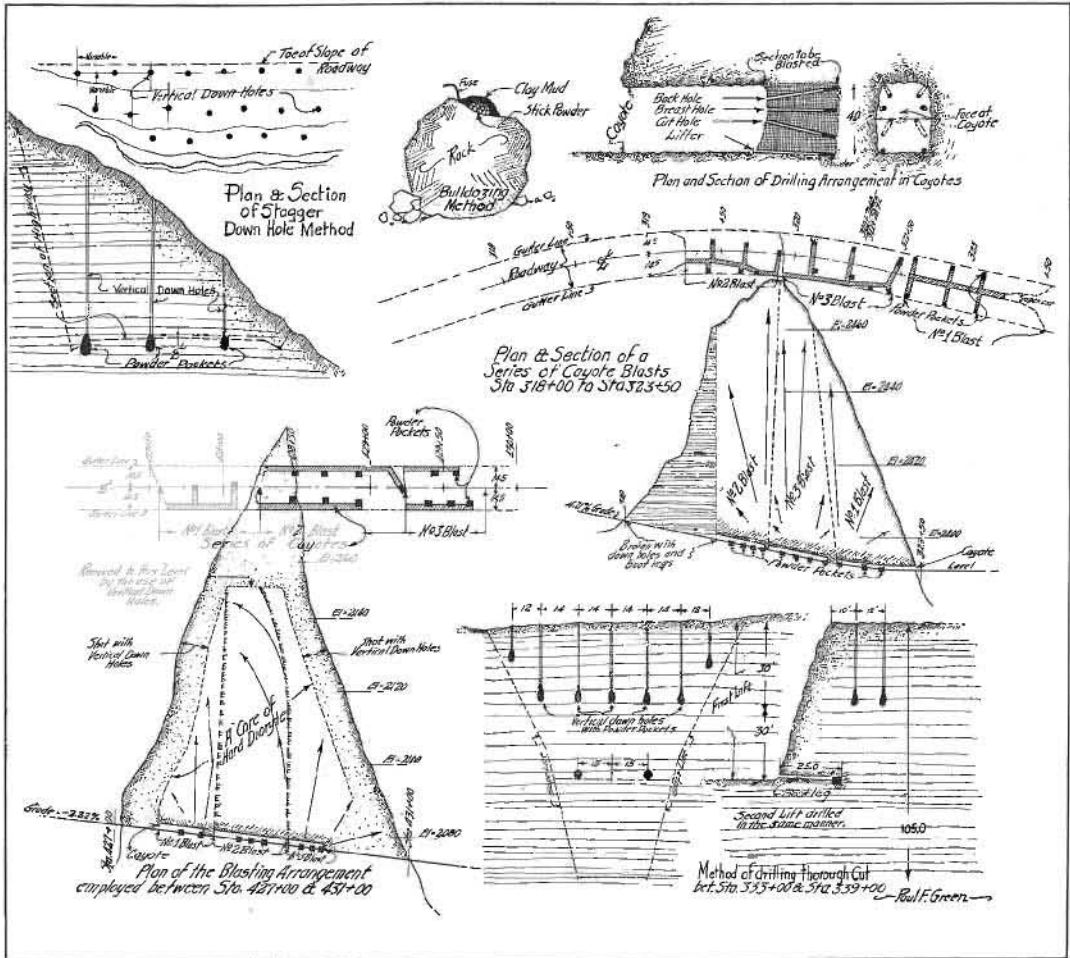 Toe of Slope of
Roadway
Variable
Variable
Vertical Down Holes
Plan & Section
of Stagger
Down Hole Method
Section of Highway
Vertical Down Holes
Powder Pockets
Fuse
Clay Mud
Stick Powder
Rock
Bulldozing
Method
Section to be
Blasted
Coyote
Back Hole
Breast Hole
Cut Hole
Lifter
Powder
Face at
Coyote
Plan and Section of Drilling Arrangement in Coyotes
Gutter Line
Roadway
Gutter Line
No 2 Blast
No 3 Blast
Powder Pockets
No 1 Blast
Plan & Section of a
Series of Coyote Blasts
Sta 318+00 to Sta 323+50
El=2460
El=2440
El=2420
El=2400
No 2 Blast
No 3 Blast
No 1 Blast
Broken with
down holes and
boot legs
Powder Pockets
Coyote
Level
Powder
Pockets
Gutter Line
No 1 Blast
No 2 Blast
No 3 Blast
Series of Coyotes
Removed to this Level
by the use of
Vertical Down
Holes.
El=2140
El=2120
El=2100
El=2080
Shot with
Vertical Down
Holes
Shot with
Vertical Down Holes
A Core of
Hard Diorite
Grade
Sta 427+00
Sta 431+00
Coyote
No 1 Blast
No 2 Blast
No 3 Blast
Plan of the Blasting Arrangement
employed between Sta. 427+00 & 431+00
12 14 14 14 14 18
10' 15'
30'
First Lift
30'
Vertical down holes
with Powder Pockets
15 15
25.0
Bootleg
Second Lift drilled
in the same manner.
105.0
Method of drilling thorough Cut
bet. Sta. 333+00 & Sta 339+00
Paul F. Green